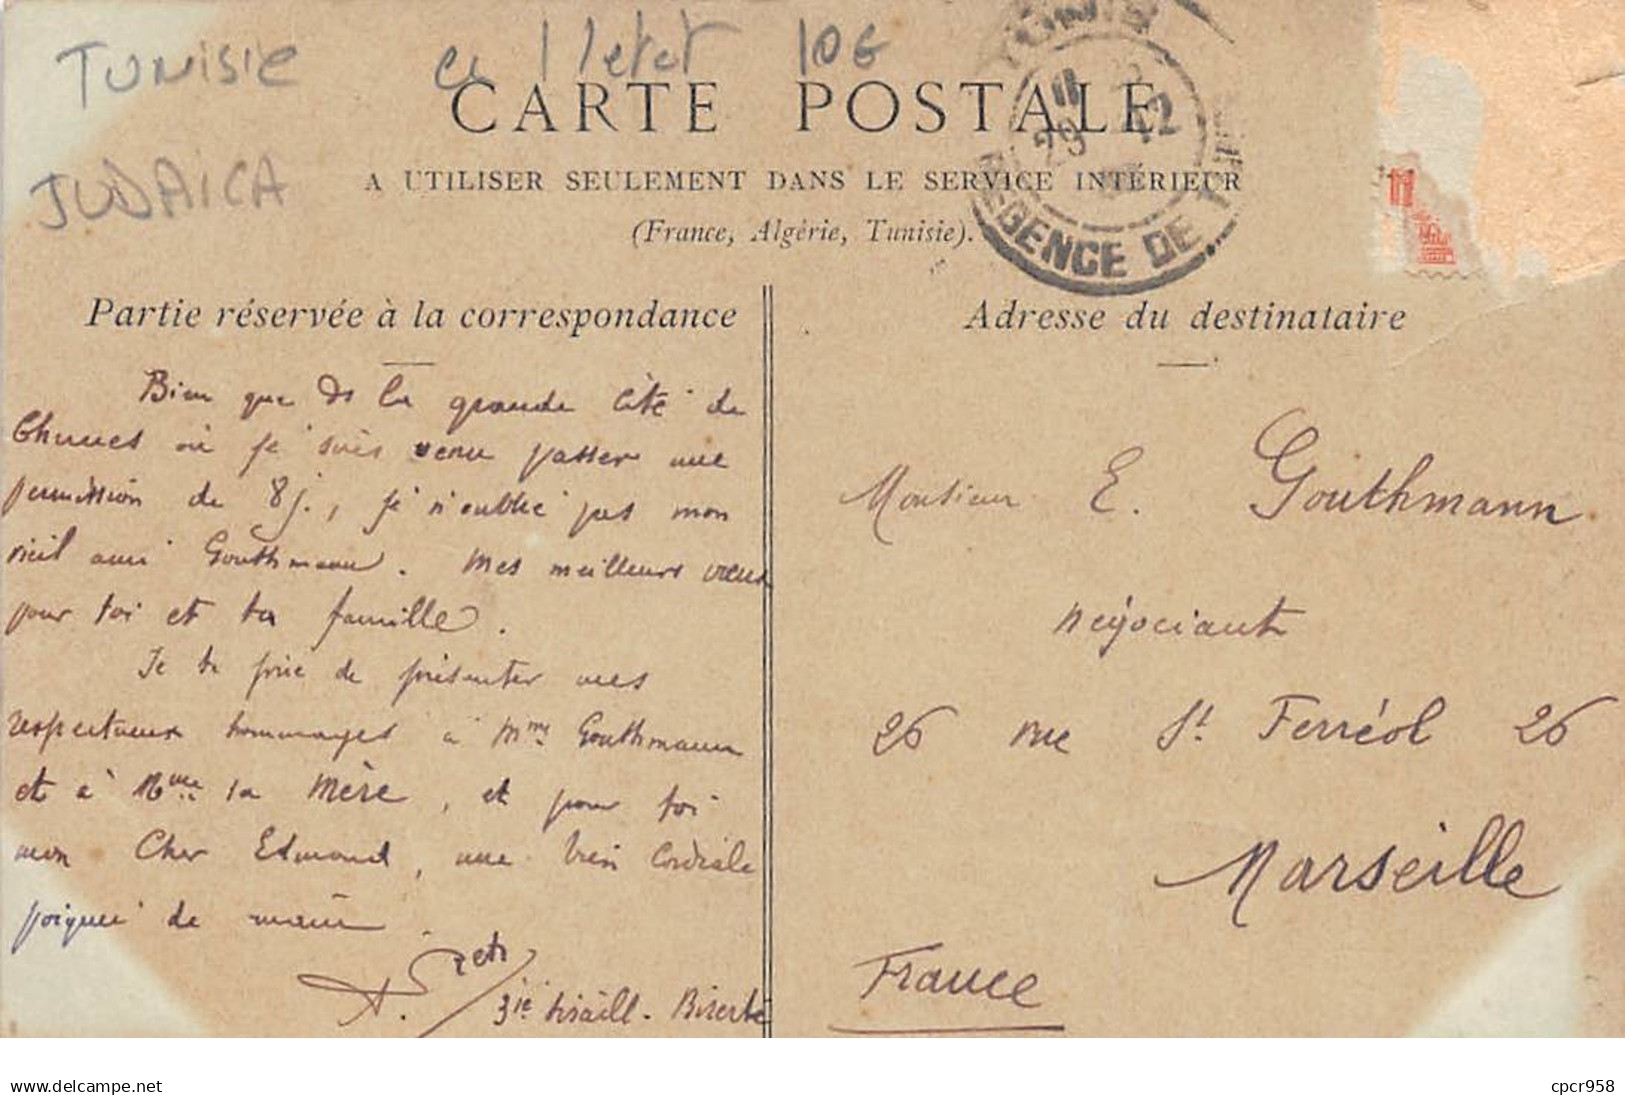 TUNISIE
en l'etat 10€
JUDAICA
CARTE POSTALE
A UTILISER SEULEMENT DANS LE SERVICE INTÉRIEUR
(France, Algérie, Tunisie).
TUNIS
29 12
REGENCE DE TUNIS
Partie réservée à la correspondance
Bien que ds la grande cité de
Thunes où je suis venu passer une
permission de 8 j., je n'oublie pas mon
vieil ami Gouthmann. Mes meilleurs vœux
pour toi et ta famille.
Je te prie de présenter mes
respectueux hommages à Mme Gouthmann
et à Mme ta Mère, et pour toi
mon Cher Edmond, une bien cordiale
poignée de main.
A.
3ie Bizerte
Adresse du destinataire
Monsieur E. Gouthmann
négociant
26 rue St Ferréol 26
Marseille
France
delcampe.net
cpcr958